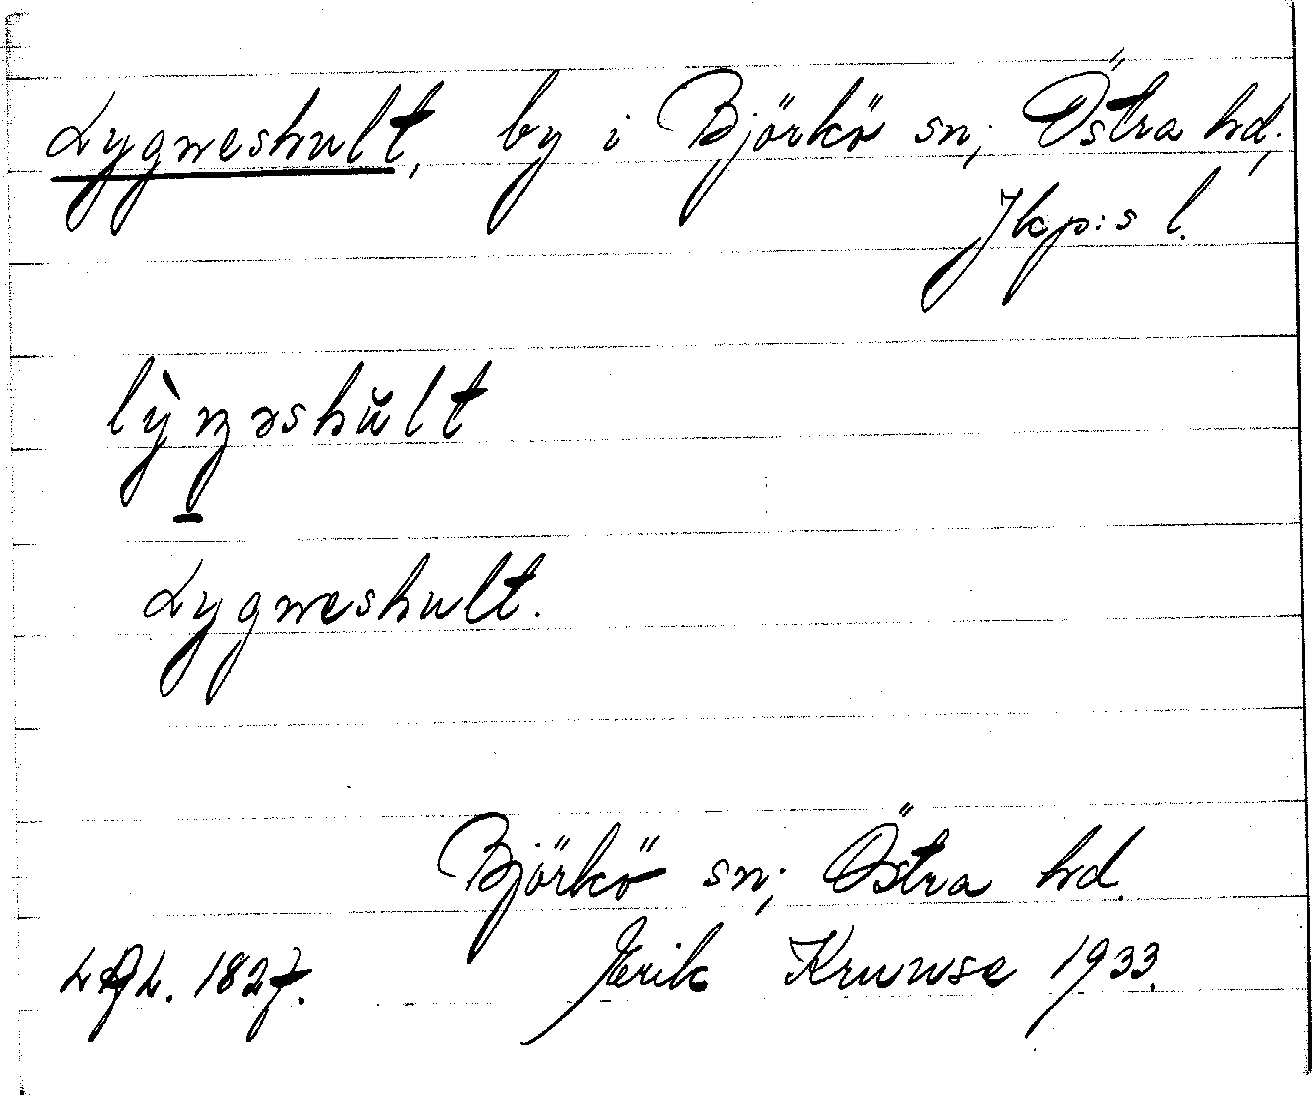 Lygneshult, by i Björkö sn; Östra hd;
Jkp:s l.
Lygneshult.
Björkö sn; Östra hd.
1827. Erik Kruuse 1933.